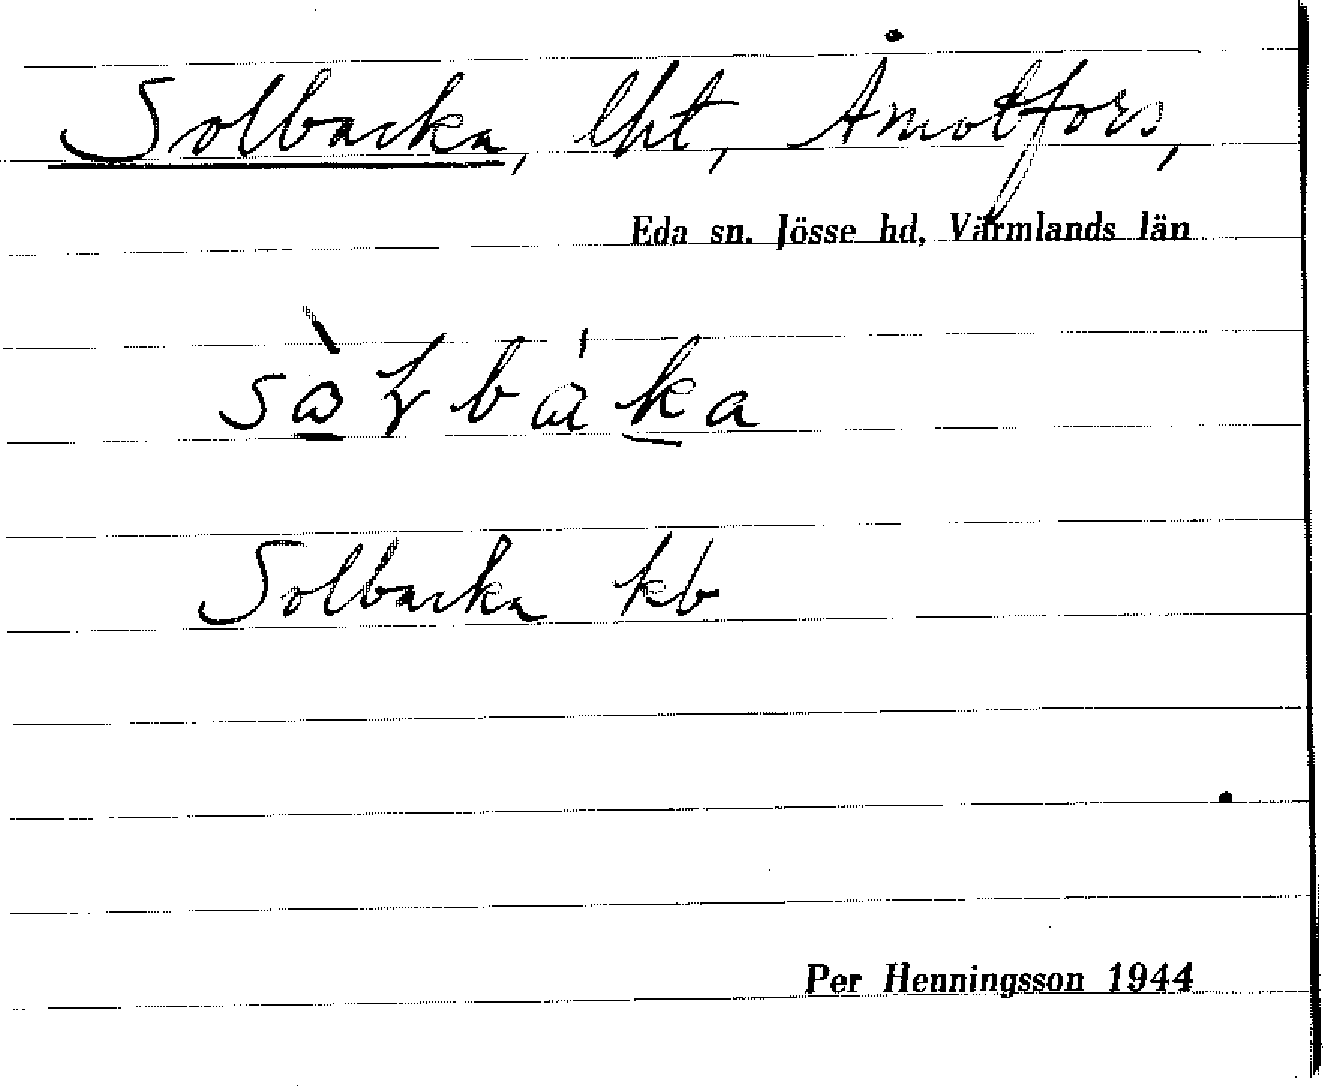 Solbacka, lht, Åmotfors,
Eda sn. Jösse hd, Värmlands län
Solbacka kb
Per Henningsson 1944